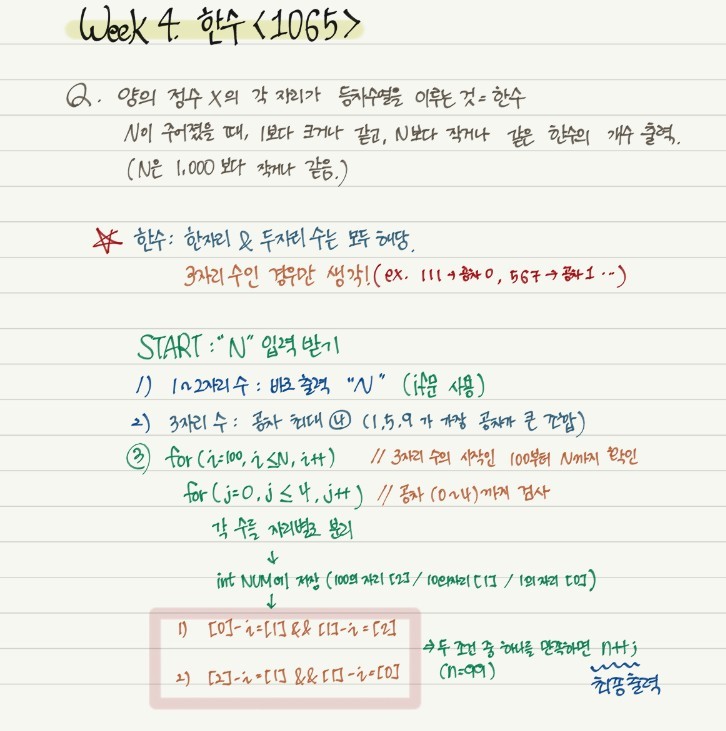 Week 4. 한수 <1065>
Q. 양의 정수 X의 각 자리가 등차수열을 이루는 것 = 한수
N이 주어졌을 때, 1보다 크거나 같고, N보다 작거나 같은 한수의 개수 출력.
(N은 1,000 보다 작거나 같음.)
☆ 한수 : 한자리 & 두자리 수는 모두 해당.
3자리 수인 경우만 생각! (ex. 111 → 공차 0, 567 → 공차 1 ...)
START : "N" 입력 받기
1) 1~2자리 수 : 바로 출력 "N" (if문 사용)
2) 3자리 수 : 공차 최대 ④ (1,5,9 가 가장 공차가 큰 조합)
③ for (i=100, i≤N, i++) // 3자리 수의 시작인 100부터 N까지 확인
for (j=0, j≤4, j++) // 공차 (0~4)까지 검사
각 수를 자리별로 분리
↓
int NUM에 저장 (100의 자리 [2] / 10의 자리 [1] / 1의 자리 [0])
↓
1) [0]-i=[1] && [1]-i=[2]
→ 두 조건 중 하나를 만족하면 n++;
2) [2]-i=[1] && [1]-i=[0]
(n=99)
최종 출력